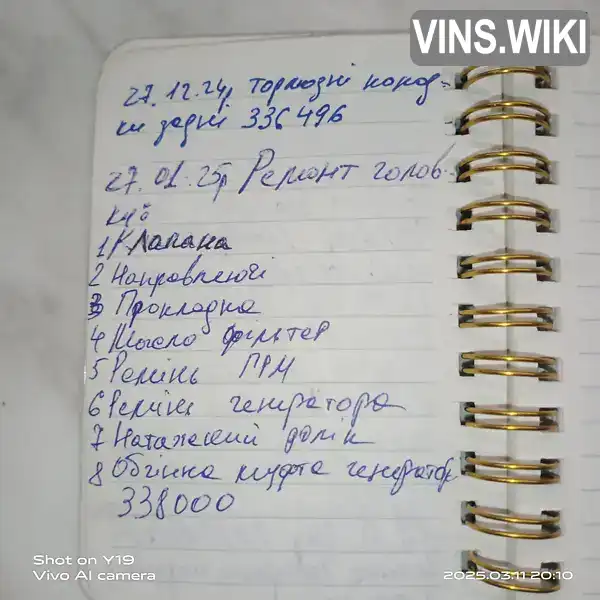 VINS.WIKI
27.12.24р тормозні колод-
ки задні 336496
27.01.25р Ремонт голов-
куй
1 Клапана
2 Направляючі
3 Прокладка
4 Масло фільтер
5 Ремінь ГРМ
6 Ремінь генератора
7 Натяжений ролік
8 Обгінна муфта генератор
338000
Shot on Y19
Vivo AI camera
2025.03.11 20:10